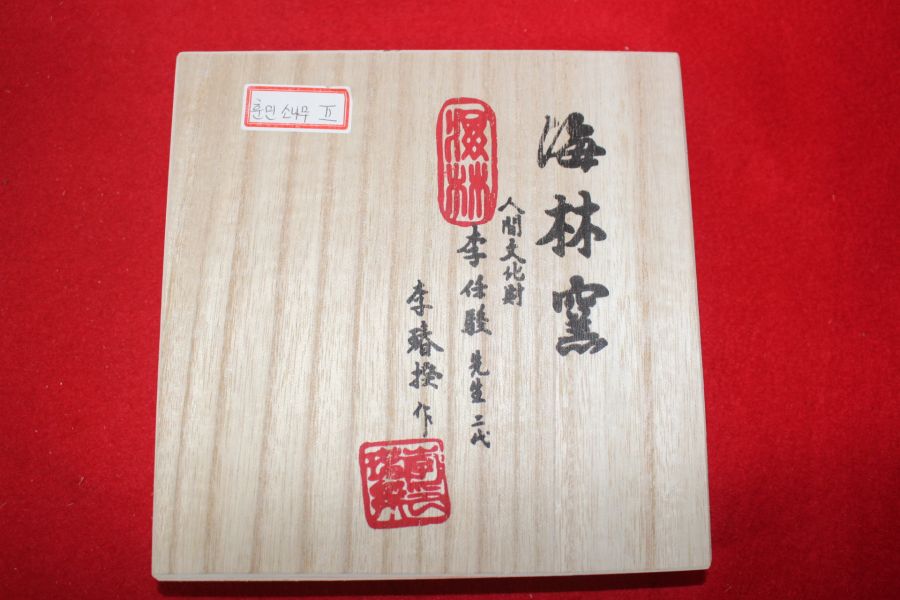 훈민 소나무 II
海林窯
人間文化財
李任駿 先生 二代
海林
李瑃揆 作